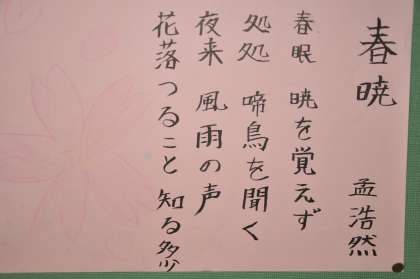 春暁
孟浩然
春眠 暁を覚えず
処処 啼鳥を聞く
夜来 風雨の声
花落つること 知る多少